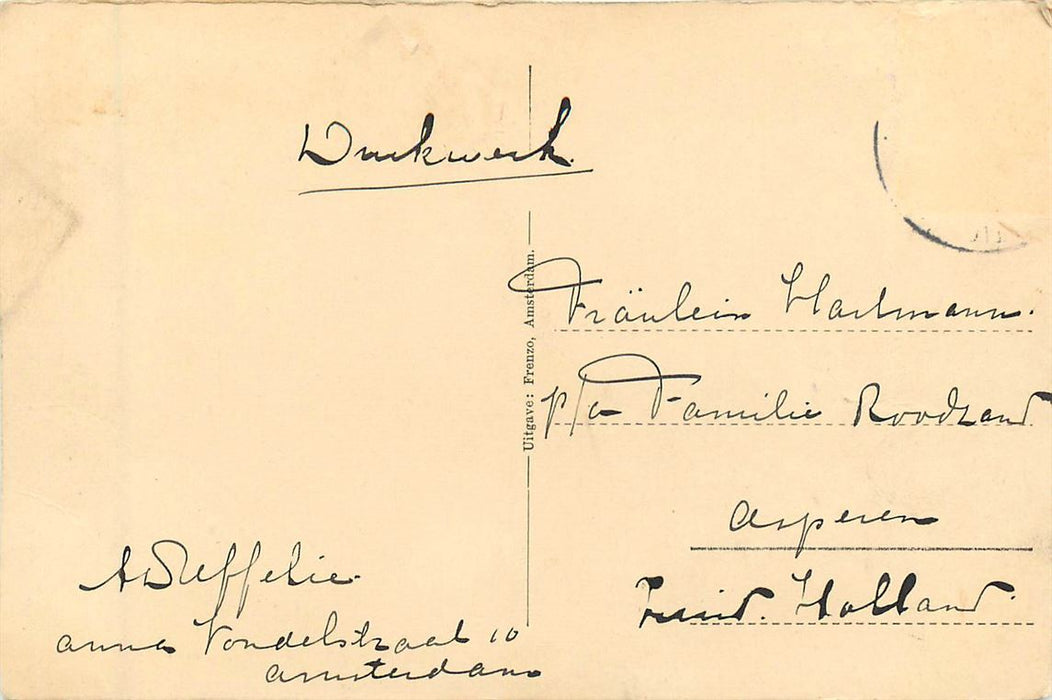 Drukwerk.
Uitgave: Frenzo, Amsterdam.
Fräulein Hartmann.
p/a Familie Roodzand
Asperen
Zuid. Holland.
Anna Vondelstraat 10
Amsterdam